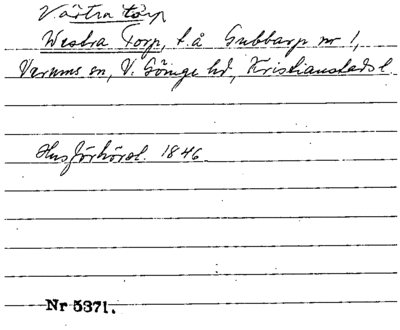 Västra torp
Westra Torp, t.å Gubbarp nr 1,
Verums sn, V. Göinge hd, Kristianstads l.
Husförhörsl. 1846
Nr 5371.